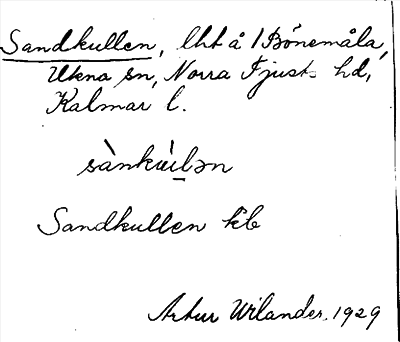 Sandkullen, lht å 1 Bönemåla,
Ukna sn, Norra Tjusts hd,
Kalmar l.
sànkùlən
Sandkullen kb
Artur Wilander. 1929